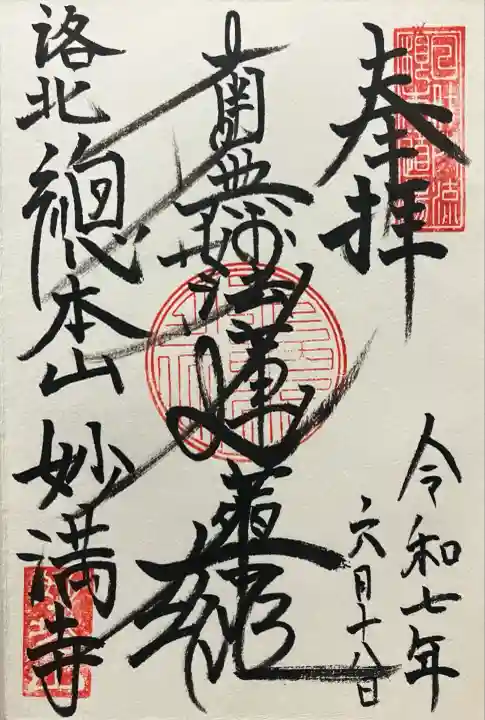 奉拝
令和七年
六月十八日
南無妙法蓮華経
洛北 總本山 妙満寺